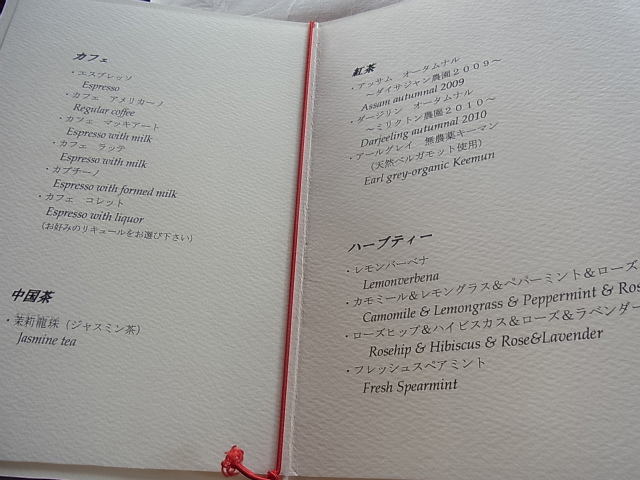 カフェ
・エスプレッソ
Espresso
・カフェ　アメリカーノ
Regular coffee
・カフェ　マッキアート
Espresso with milk
・カフェ　ラッテ
Espresso with milk
・カプチーノ
Espresso with formed milk
・カフェ　コレット
Espresso with liquor
（お好みのリキュールをお選び下さい）
中国茶
・茉莉龍珠（ジャスミン茶）
Jasmine tea
紅茶
・アッサム　オータムナル
～ダイサジャン農園２００９～
Assam autumnal 2009
・ダージリン　オータムナル
～ミリクトン農園２０１０～
Darjeeling autumnal 2010
・アールグレイ　無農薬キーマン
（天然ベルガモット使用）
Earl grey-organic Keemun
ハーブティー
・レモンバーベナ
Lemonverbena
・カモミール＆レモングラス＆ペパーミント＆ローズ
Camomile & Lemongrass & Peppermint & Ros
・ローズヒップ＆ハイビスカス＆ローズ＆ラベンダー
Rosehip & Hibiscus & Rose&Lavender
・フレッシュスペアミント
Fresh Spearmint